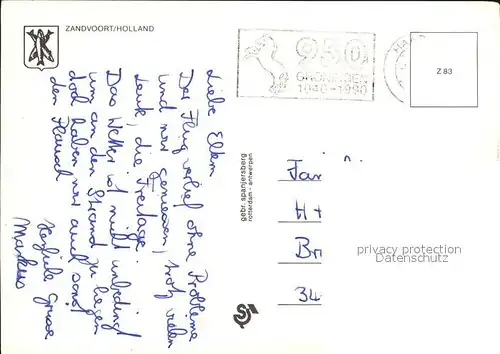 ZANDVOORT/HOLLAND
950
GRONINGEN
1040-1990
HAA
Z 83
Liebe Eltern
Der Flug verlief ohne Probleme
und wir geniessen, trotz vielen
Leuk, die Freitage.
Das Wetter ist nicht unbedingt
um an den Strand zu liegen
doch haben wir auch sonst
den Plausch
Herzliche Grüsse
Markus
gebr. spanjersberg
rotterdam - antwerpen
Far
H+
Br
34
privacy protection
Datenschutz